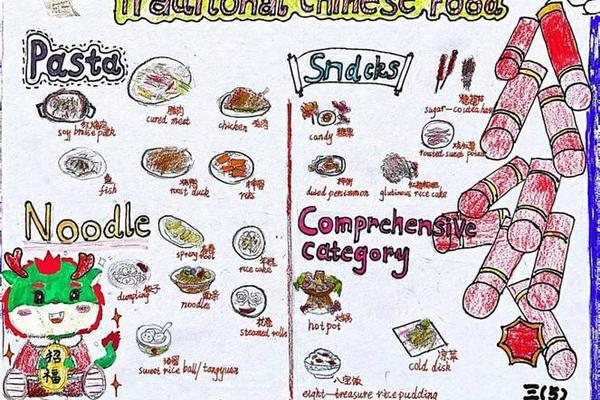 Traditional Chinese Food
Pasta
soy braise pork
腊肉
cured meat
chicken
鱼
fish
烤鸭
roast duck
Snacks
candy 糖果
sugar-coated haw
roasted sweet potato
柿饼
dried persimmon
glutinous rice cake
Noodle
春卷
spring roll
年糕
rice cake
饺子
dumpling
面条
noodles
花卷
steamed rolls
汤圆
sweet rice ball/tangyuan
Comprehensive
category
火锅
hot pot
凉菜
cold dish
八宝饭
eight-treasure rice pudding
招
福
三(5)